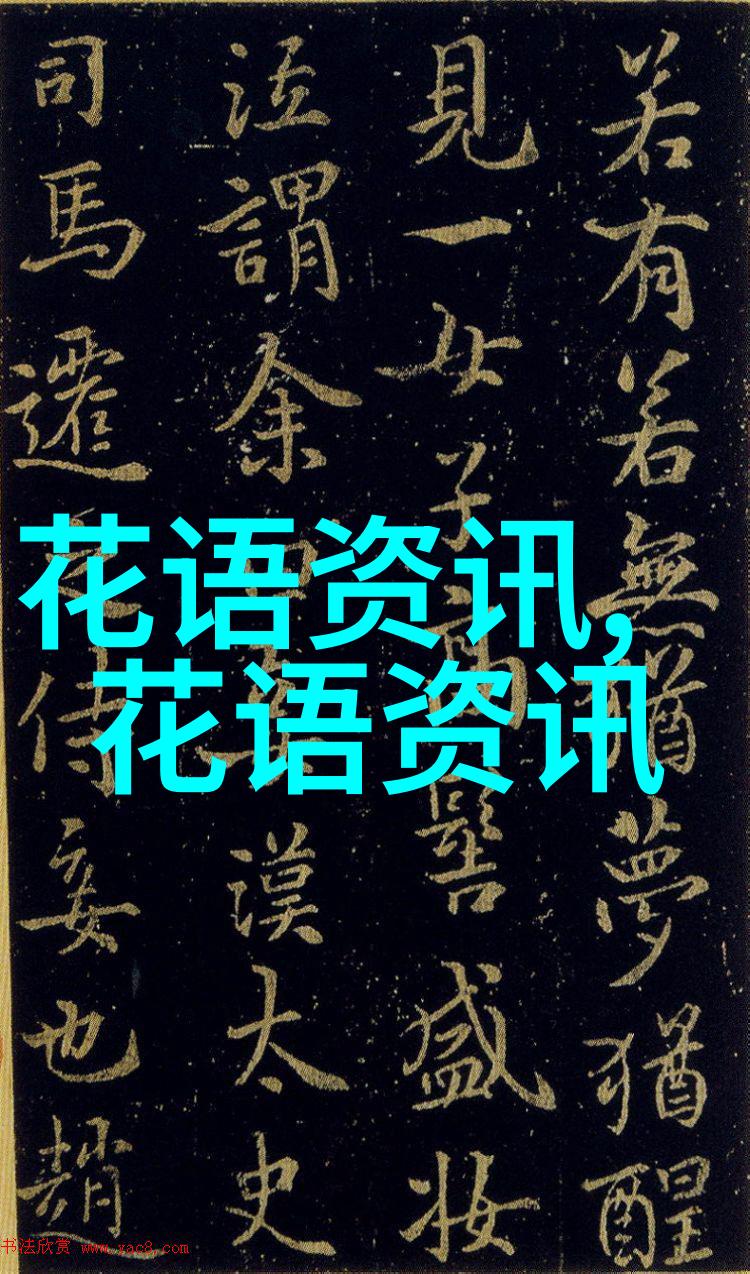 若有若無猶夢猶醒
見一女子高髻盛妝
泣謂余漢太史
司馬遷侍妾也趙
花语资讯,
花语资讯
书法欣赏 www.yac8.com